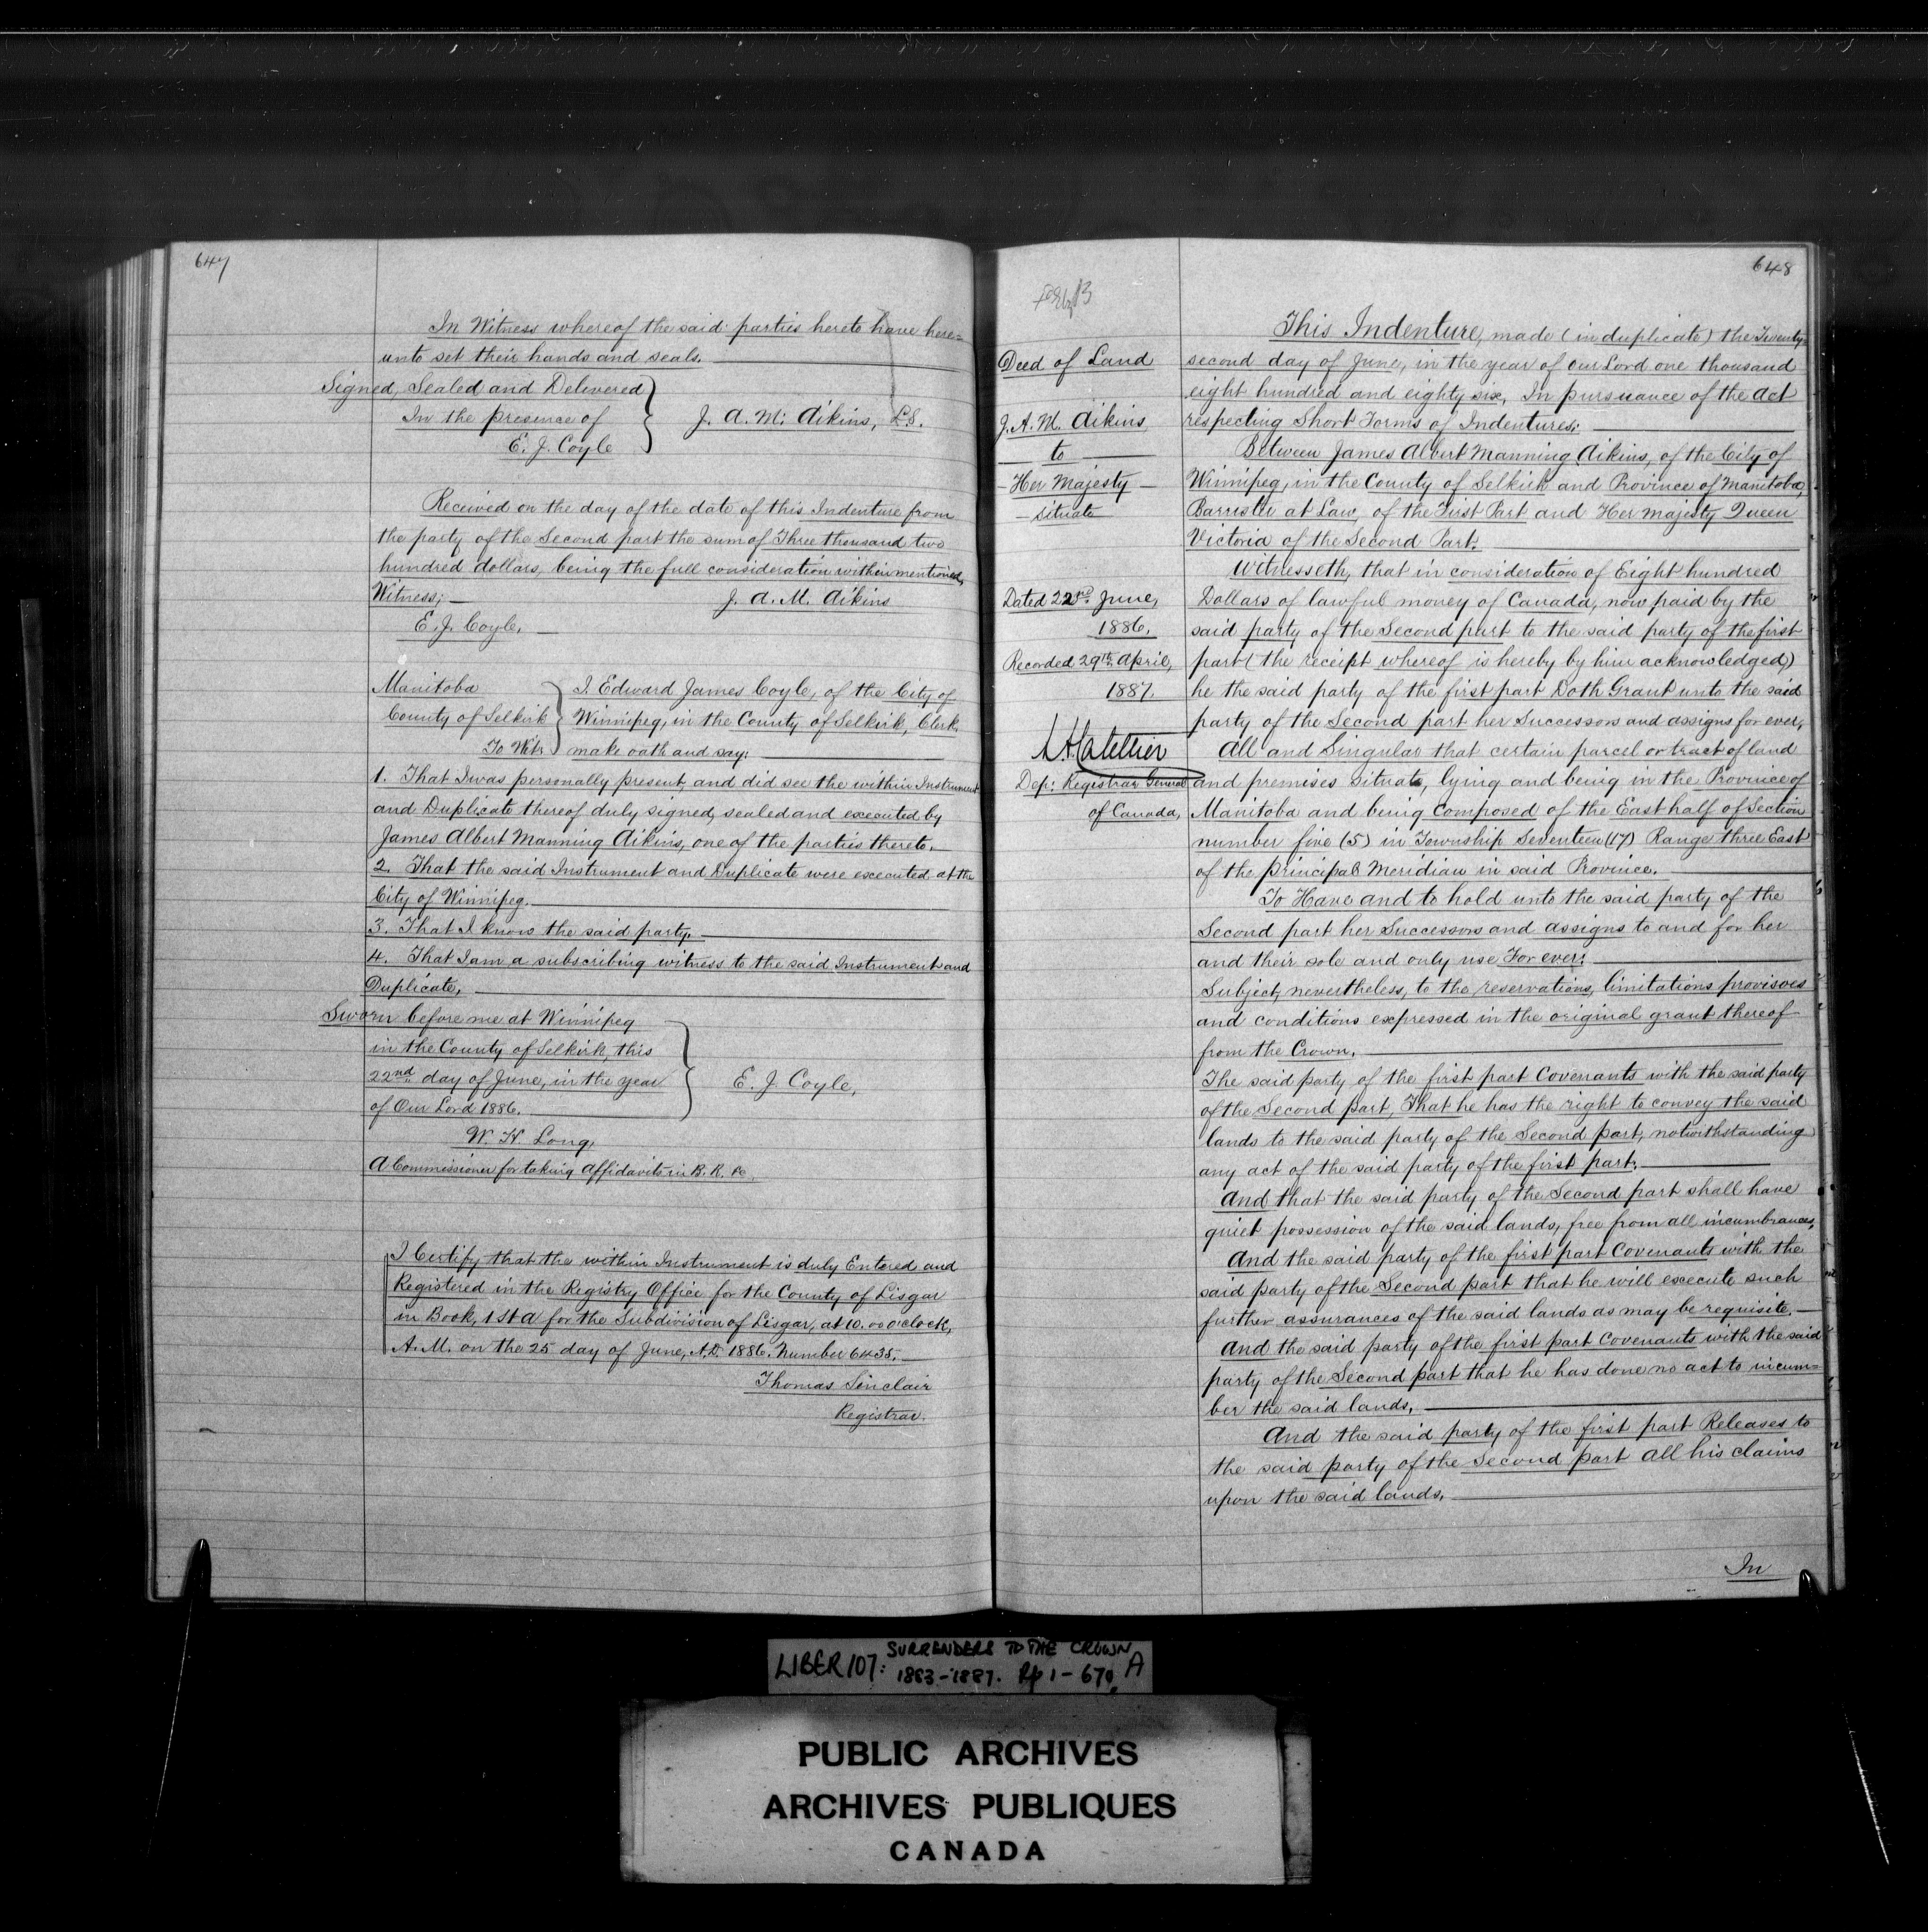 647
In Witness whereof the said parties hereto have here=
unto set their hands and seals.
Signed, Sealed and Delivered
In the presence of
E. J. Coyle
J. A. M. Aikins, L.S.
Received on the day of the date of this Indenture from
the party of the Second part the sum of Three thousand two
hundred dollars, being the full consideration within mentioned,
Witness;
J. A. M. Aikins
E. J. Coyle.
Manitoba
County of Selkirk
To Wit:
I. Edward James Coyle, of the City of
Winnipeg, in the County of Selkirk, Clerk.
make oath and say:
1. That I was personally present, and did see the within Instrument
and Duplicate thereof duly signed, sealed and executed by
James Albert Manning Aikins, one of the parties thereto.
2. That the said Instrument and Duplicate were executed at the
City of Winnipeg.
3. That I know the said party.
4. That I am a subscribing witness to the said Instrument and
Duplicate,
Sworn before me at Winnipeg
in the County of Selkirk, this
22nd day of June, in the year
of Our Lord 1886.
E. J. Coyle,
W. H. Long,
A Commissioner for taking Affidavits in B. R. &c.
I Certify that the within Instrument is duly Entered and
Registered in the Registry Office for the County of Lisgar
in Book, 1 St A for the Subdivision of Lisgar, at 10.00 o'clock,
A.M. on the 25 day of June, A.D. 1886. Number 6435.
Thomas Sinclair
Registrar.
648
Deed of Land
J. A. M. Aikins
to
Her Majesty
situate
Dated 22nd June,
1886.
Recorded 29th April,
1887.
Dep: Registrar General
of Canada,
This Indenture, made (in duplicate) the Twenty=
second day of June, in the year of our Lord one thousand
eight hundred and eighty six, In pursuance of the Act
respecting Short Forms of Indentures:
Between James Albert Manning Aikins, of the City of
Winnipeg, in the County of Selkirk and Province of Manitoba,
Barrister at Law, of the First Part and Her Majesty Queen
Victoria of the Second Part.
Witnesseth, that in consideration of Eight hundred
Dollars of lawful money of Canada, now paid by the
said party of the Second part to the said party of the first
part (the receipt whereof is hereby by him acknowledged)
he the said party of the first part Doth Grant unto the said
party of the Second part her Successors and assigns for ever,
All and Singular that certain parcel or tract of land
and premises situate, lying and being in the Province of
Manitoba and being Composed of the East half of Section
number five (5) in Township Seventeen (17) Range three East
of the principal Meridian in said Province.
To Have and to hold unto the said party of the
Second part her Successors and assigns to and for her
and their sole and only use For ever:
Subject, nevertheless, to the reservations, limitations provisoes
and conditions expressed in the original grant thereof
from the Crown.
The said party of the first part Covenants with the said party
of the Second part, That he has the right to convey the said
lands to the said party of the Second part, notwithstanding
any act of the said party of the first part.
And that the said party of the Second part shall have
quiet possession of the said lands, free from all incumbrances,
And the said party of the first part Covenants with the
said party of the Second part that he will execute such
further assurances of the said lands as may be requisite.
And the said party of the first part Covenants with the said
party of the Second part that he has done no act to incum=
ber the said lands,
And the said party of the first part Releases to
the said party of the Second part all his claims
upon the said lands.
In
LIBER 107: SURRENDERS TO THE CROWN A
1883-1887. Pp 1-670.
PUBLIC ARCHIVES
ARCHIVES PUBLIQUES
CANADA